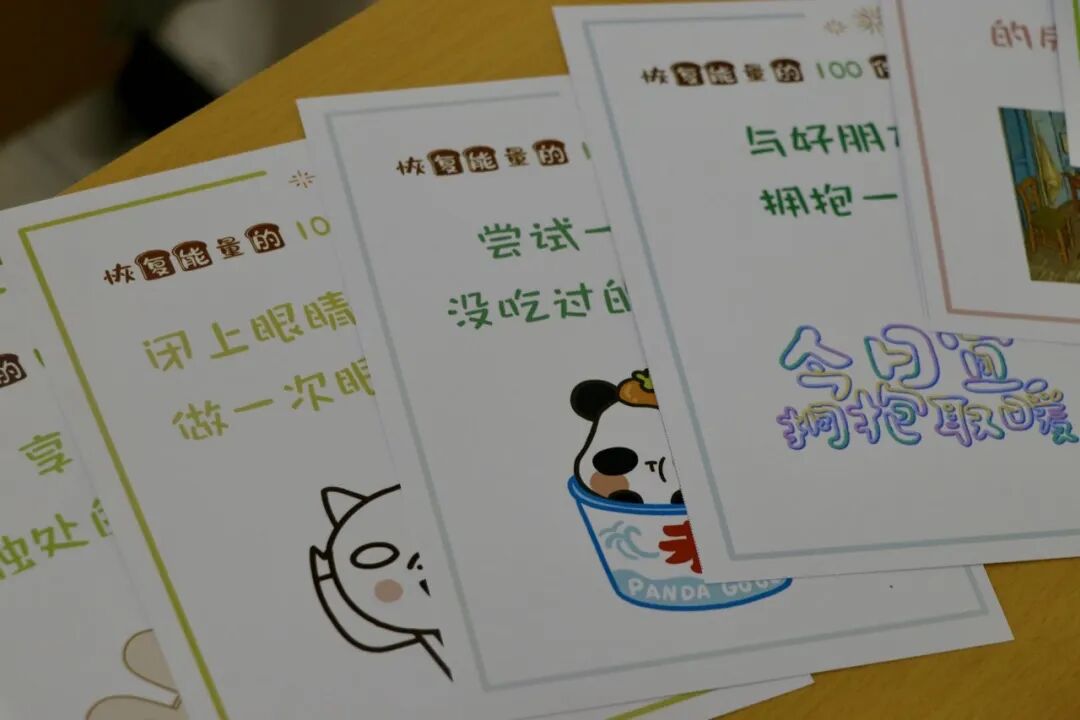 的
享
处
恢复能量的 10
闭上眼睛
做一次眼
恢复能量的 1
尝试一
没吃过的
PANDA GO
恢复能量的 100
与好朋
拥抱一
今日宜
拥抱取暖
的